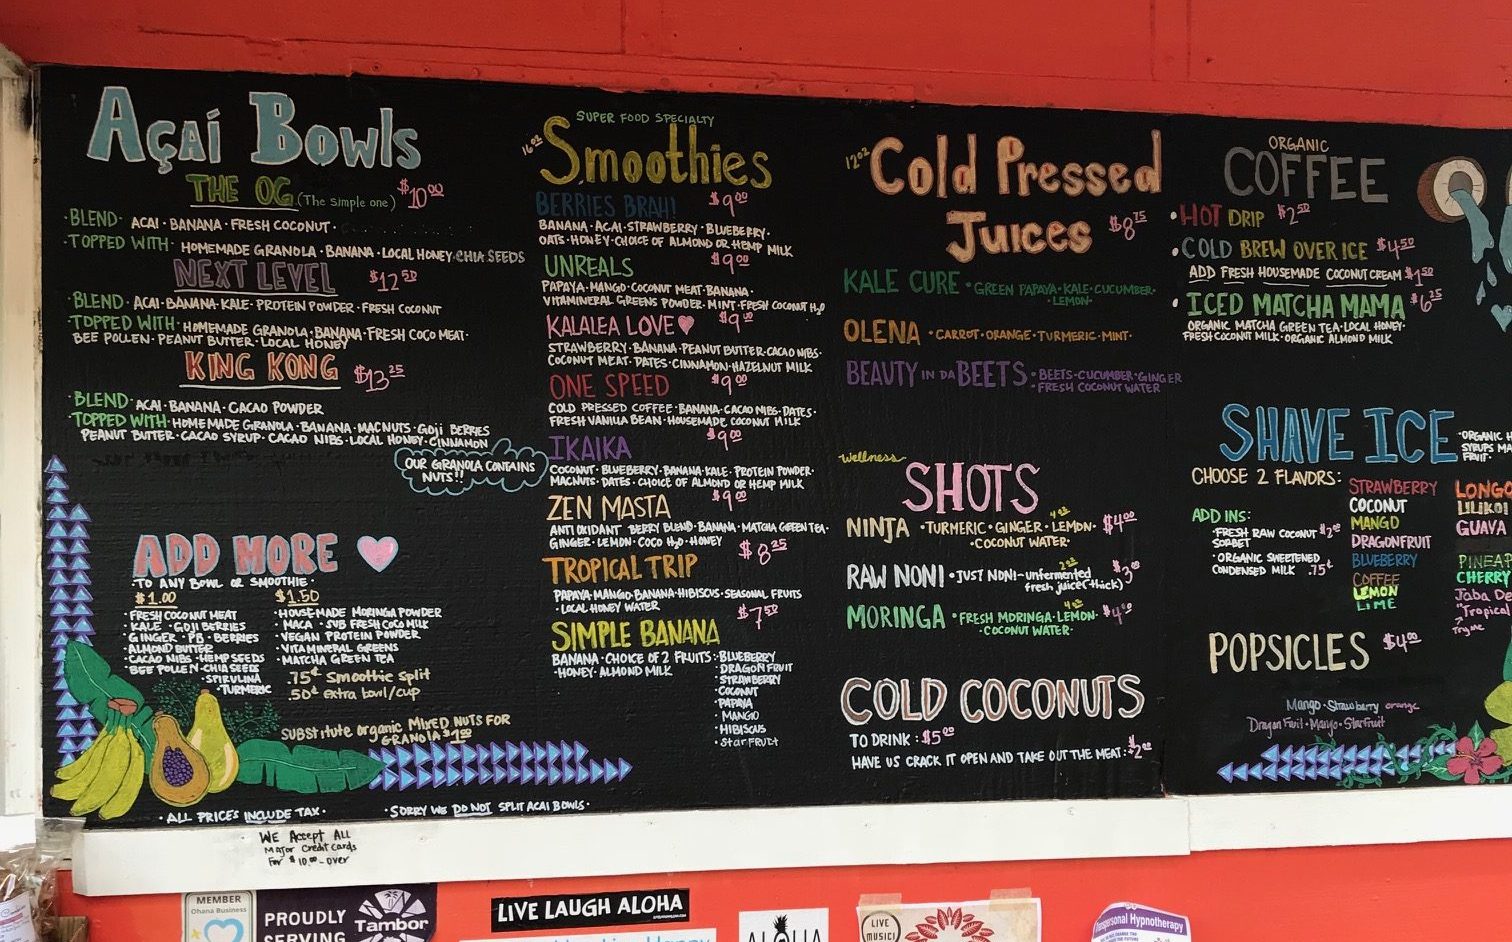 Açaí Bowls
THE OG (The simple one) $10.00
·BLEND· ACAI·BANANA·FRESH COCONUT·
·TOPPED WITH· HOMEMADE GRANOLA·BANANA·LOCAL HONEY·CHIA SEEDS
NEXT LEVEL $12.50
·BLEND· ACAI·BANANA·KALE·PROTEIN POWDER·FRESH COCONUT
·TOPPED WITH·HOMEMADE GRANOLA·BANANA·FRESH COCO MEAT·
BEE POLLEN·PEANUT BUTTER·LOCAL HONEY
KING KONG $13.25
·BLEND· ACAI·BANANA·CACAO POWDER
·TOPPED WITH·HOMEMADE GRANOLA·BANANA·MACNUTS·GOJI BERRIES
PEANUT BUTTER·CACAO SYRUP·CACAO NIBS·LOCAL HONEY·CINNAMON
OUR GRANOLA CONTAINS
NUTS!!
ADD MORE
·TO ANY BOWL OR SMOOTHIE·
$1.00
·FRESH COCONUT MEAT
·KALE·GOJI BERRIES
·GINGER·PB·BERRIES
·ALMOND BUTTER
·CACAO NIBS·HEMP SEEDS
·BEE POLLEN·CHIA SEED
·SPIRULINA
·TURMERIC
$1.50
·HOUSE-MADE MORINGA POWDER
·MACA ·SUB FRESH COCO MILK
·VEGAN PROTEIN POWDER
·VITAMINERAL GREENS
·MATCHA GREEN TEA
.75¢ Smoothie split
.50¢ extra bowl/cup
SUBSTITUTE organic MIXED NUTS FOR
GRANOLA $1.00
·ALL PRICES INCLUDE TAX·
·SORRY WE DO NOT SPLIT ACAI BOWLS·
WE Accept ALL
Major Credit cards
For $10.00-over
SUPER FOOD SPECIALTY
16oz Smoothies
BERRIES BRAH! $9.00
BANANA·ACAI·STRAWBERRY·BLUEBERRY·
OATS·HONEY·CHOICE OF ALMOND OR HEMP MILK
UNREALS $9.00
PAPAYA·MANGO·COCONUT MEAT·BANANA·
VITAMINERAL GREENS POWDER·MINT·FRESH COCONUT H₂O
KALALEA LOVE♥ $9.00
STRAWBERRY·BANANA·PEANUT BUTTER·CACAO NIBS·
COCONUT MEAT·DATES·CINNAMON·HAZELNUT MILK
ONE SPEED $9.00
COLD PRESSED COFFEE·BANANA·CACAO NIBS·DATES·
FRESH VANILLA BEAN·HOUSEMADE COCONUT MILK
IKAIKA $9.00
COCONUT·BLUEBERRY·BANANA·KALE·PROTEIN POWDER·
MACNUTS·DATES·CHOICE OF ALMOND OR HEMP MILK
ZEN MASTA $9.00
ANTI OXIDANT BERRY BLEND·BANANA·MATCHA GREEN TEA·
GINGER·LEMON·COCO H₂O·HONEY
TROPICAL TRIP $8.25
PAPAYA·MANGO·BANANA·HIBISCUS·SEASONAL FRUITS
·LOCAL HONEY WATER
SIMPLE BANANA $7.50
BANANA·CHOICE OF 2 FRUITS:·BLUEBERRY
·HONEY·ALMOND MILK
·DRAGON FRUIT
·STRAWBERRY
·COCONUT
·PAPAYA
·MANGO
·HIBISCUS
·STARFRUIT
12oz Cold Pressed
Juices $8.75
KALE CURE ·GREEN PAPAYA·KALE·CUCUMBER·
·LEMON·
OLENA ·CARROT·ORANGE·TURMERIC·MINT·
BEAUTY IN DA BEETS: ·BEETS·CUCUMBER·GINGER
·FRESH COCONUT WATER
wellness
SHOTS
NINJA ·TURMERIC·GINGER·LEMON· 4oz $4.00
·COCONUT WATER·
RAW NONI ·JUST NONI-unfermented 2oz $3.00
fresh juice (thick)
MORINGA ·FRESH MORINGA·LEMON· 4oz $4.00
·COCONUT WATER·
COLD COCONUTS
TO DRINK: $5.00
HAVE US CRACK IT OPEN AND TAKE OUT THE MEAT: $2.00
ORGANIC
COFFEE
·HOT DRIP $2.50
·COLD BREW OVER ICE $4.50
ADD FRESH HOUSEMADE COCONUT CREAM $1.50
·ICED MATCHA MAMA $6.25
ORGANIC MATCHA GREEN TEA·LOCAL HONEY·
FRESH COCONUT MILK·ORGANIC ALMOND MILK
SHAVE ICE
·ORGANIC H
SYRUPS MA
FRUIT·
CHOOSE 2 FLAVORS:
STRAWBERRY
COCONUT
MANGO
DRAGONFRUIT
BLUEBERRY
COFFEE
LEMON
LIME
LONGO
LILIKOI
GUAVA
PINEAP
CHERRY
Jaba De
"Tropical
Try me
ADD INS:
·FRESH RAW COCONUT
SORBET
·ORGANIC SWEETENED
CONDENSED MILK .75¢
POPSICLES $4.00
Mango·Strawberry orange
Dragon Fruit·Mango·Starfruit
MEMBER
Ohana Business
PROUDLY
SERVING
Tambor
LIVE LAUGH ALOHA
ALOHA
LIVE
MUSIC!
Transpersonal Hypnotherapy